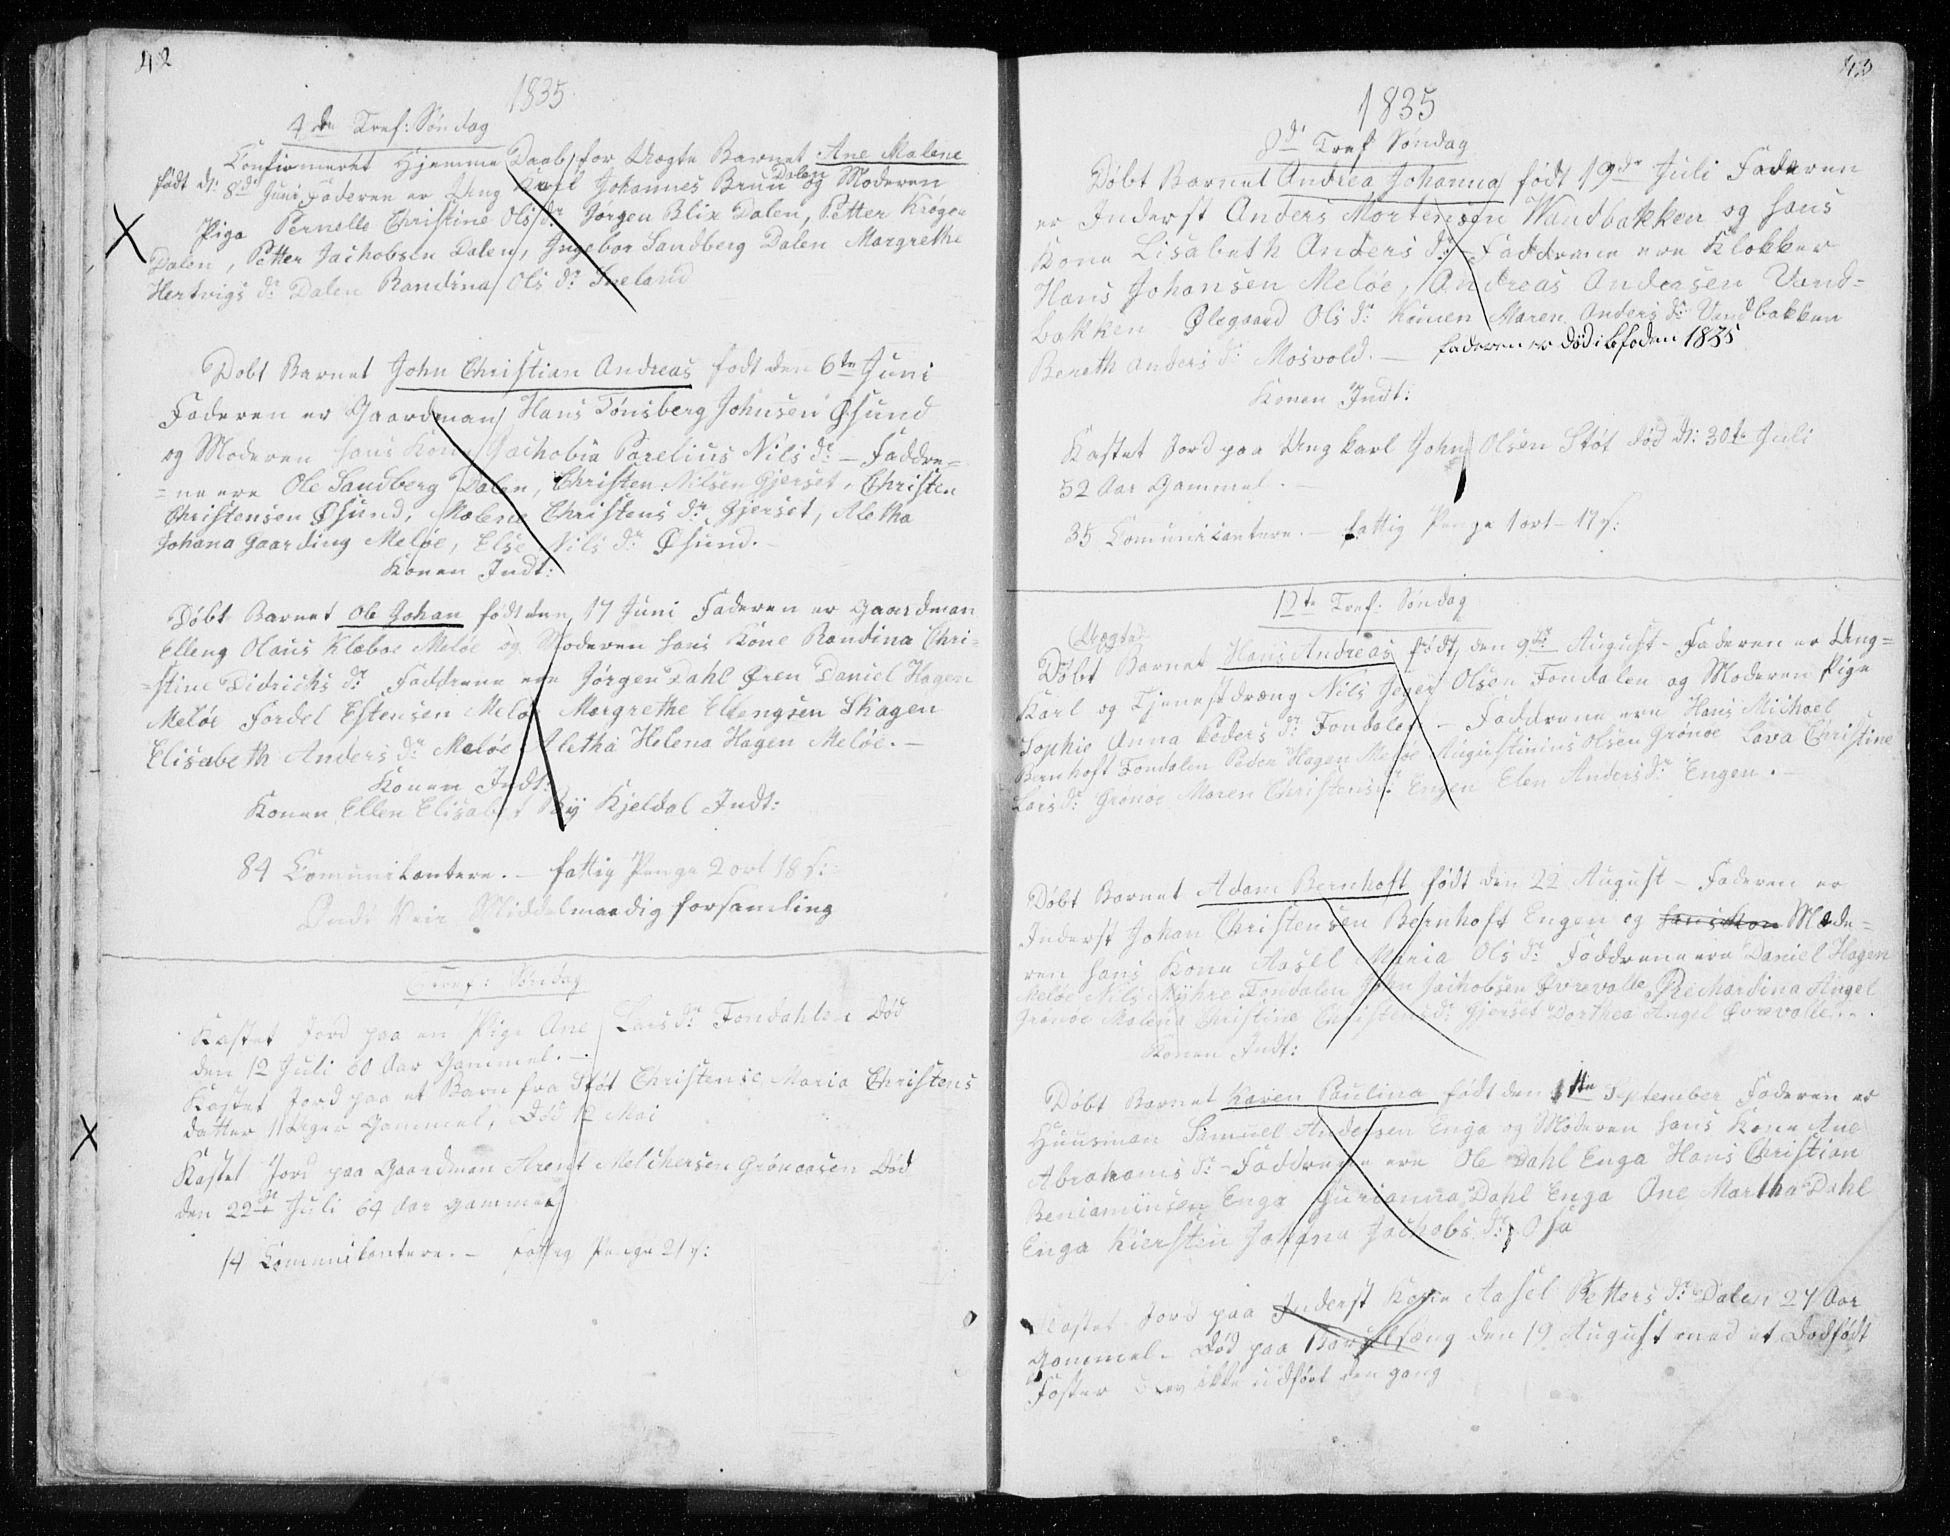 42
1835
4de Tref: Søndag
Confirmeret Hjemme Daab for Uægte Barnet Ane Malene
født d: 8de Juni Faderen er Ung Karl Johannes Bruu Dalen og Moderen
Pige Pernelle Christine Olsdr Jørgen Blix Dalen, Petter Krøgen
Dalen, Petter Jachobsen Dalen, Ingebor Sandberg Dalen Margrethe
Hertvigs dr Dalen Randina Ols dr
Døbt Barnet John Christian Andreas født den 6te Juni
Faderen er Gaardman Hans Tønsberg Johnsen Øsund
og Moderen hans Kone Jachobia Parelius Nils dr – Faddre=
=ne ere Ole Sandberg Dalen, Christen Nilsen Gjerset, Christen
Christensen Øsund, Malene Christens dr Gjerset, Aletha
Johana Gaarding Meløe, Else Nils dr Øsund. –
Konen Indt:
Døbt Barnet Ole Johan født den 17 Juni Faderen er Gaardman
Elleng Olaus Klæboe Meløe og Moderen hans Kone Randina Chri=
=stine Didrichs dr Faddrene ere Jørgen Dahl Øren Daniel Hagen
Meløe Fordel Estensen Meløe Margrethe Ellengsen Skagen
Elisabeth Anders dr Meløe Aletha Helena Hagen Meløe. –
Konen Indt:
Konen Ellen Elisabet Ry Kjeldal Indt:
84 Comunicantere. – fattig Penge 2 ort 18 s:
Ondt Veir Middelmaadig forsamling
6 Tref: Søndag
Kastet Jord paa en Pige Ane Lars dr Fondahlen Død
den 12 Juli 60 Aar Gammel. –
Kastet Jord paa et Barn fra Støt Christense Maria Christens
datter 11 Uger Gammel, Død 12 Mai
Kastet Jord paa Gaardman Arent Melchersen Grønaasen Død
den 22de Juli 64 Aar gammel
14 Communicantere. – fattig Penge 21 s:
43
1835
8de Tref Søndag
Døbt Barnet Andrea Johanna født 19de Juli Faderen
er Inderst Anders Mortensen Wandbakken og hans
Kone Lisabeth Anders dr – Faddrene ere Klokker
Hans Johansen Meløe, Andreas Andersen Vand=
bakken Ølegaard Ols dr Kunen Maren Anders dr Vandbakken
Bereth Anders dr Mosvold. – faderen er død i bfoden 1835
Konen Indt:
Kastet Jord paa Ung karl John Olsen Støt død d: 30te Juli
52 Aar Gammel. –
35 Comunicantere. – fattig Penge 1 ort – 17 s:
12te Tref: Søndag
(Uægte)
Døbt Barnet Hans Andreas født den 9de August – Faderen er Ung=
Karl og Tjenestdræng Nils Jeger Olsen Fondalen og Moderen Pige
Sophie Anna Peders dr Fondalen – Faddrene ere Hans Michael
Bernhoft Fondalen Peder Hagen Meløe Augustinius Olsen Grønøe Lava Christine
Lars dr Grønøe Maren Christens dr Engen Elen Anders dr Engen. –
Døbt Barnet Adam Bernhoft født den 22 August – Faderen er
Inderst Johan Christensen Bernhoft Engen og hans Kon Mode=
ren hans Kone Aasel Maria Ols dr Faddrene ere Daniel Hagen
Meløe Nils Myhre Fondalen John Jachobsen Øvrevolle Richardina Angel
Grønøe Malena Christine Christens dr Gjerset Dorthea Angel Øvrevolle. . .
Konen Indt:
Døbt Barnet Karen Paulina født den 1te September Faderen er
Huusman Samuel Andersen Enga og Moderen hans Kone Ane
Abrahams dr – Faddrene ere Ole Dahl Enga Hans Christian
Beniaminsen Enga Gurianna Dahl Enga Ane Martha Dahl
Enga Kiersten Johana Jachobs dr Osa
Kastet Jord paa Inderst Kone Aasel Petters dr Dalen 27 Aar
Gammel. Død paa Barselsæng den 19 August med et Dødfødt
Foster blev ikke indført den gang